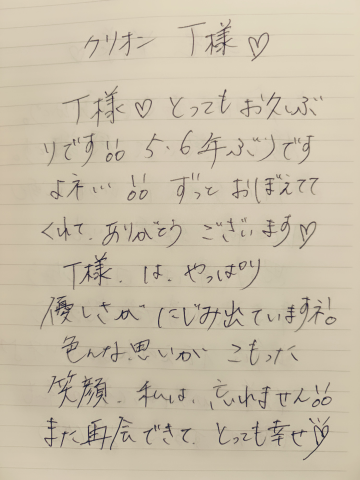 クリオン T様♡
T様♡とってもお久しぶ
りです!! 5、6年ぶりです
よネ… !! ずっとおぼえてて
くれて、ありがとうございます♡
T様、は、やっぱり
優しさがにじみ出ていますネ!
色んな思いがこもった
笑顔、私は、忘れません!!
また再会できて、とっても幸せ♡